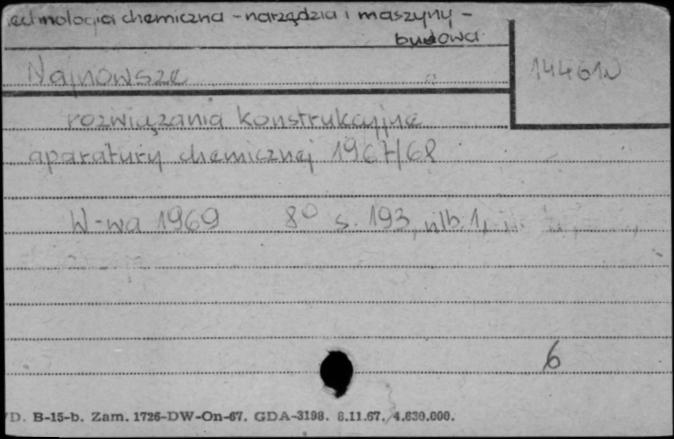 technologia chemiczna - narządzia i maszyny -
budowa
Najnowsze
14461N
rozwiązania konstrukcyjne
aparatury chemicznej 1967/68
W-wa 1969 8° s. 193, nlb. 1,
6
D. B-15-b. Zam. 1726-DW-On-67. GDA-3198. 8.11.67. 4.630.000.